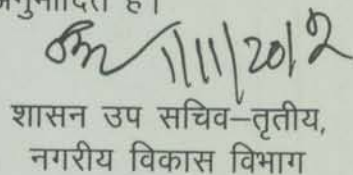 अनुमोदित है।
1/11/2012
शासन उप सचिव–तृतीय,
नगरीय विकास विभाग